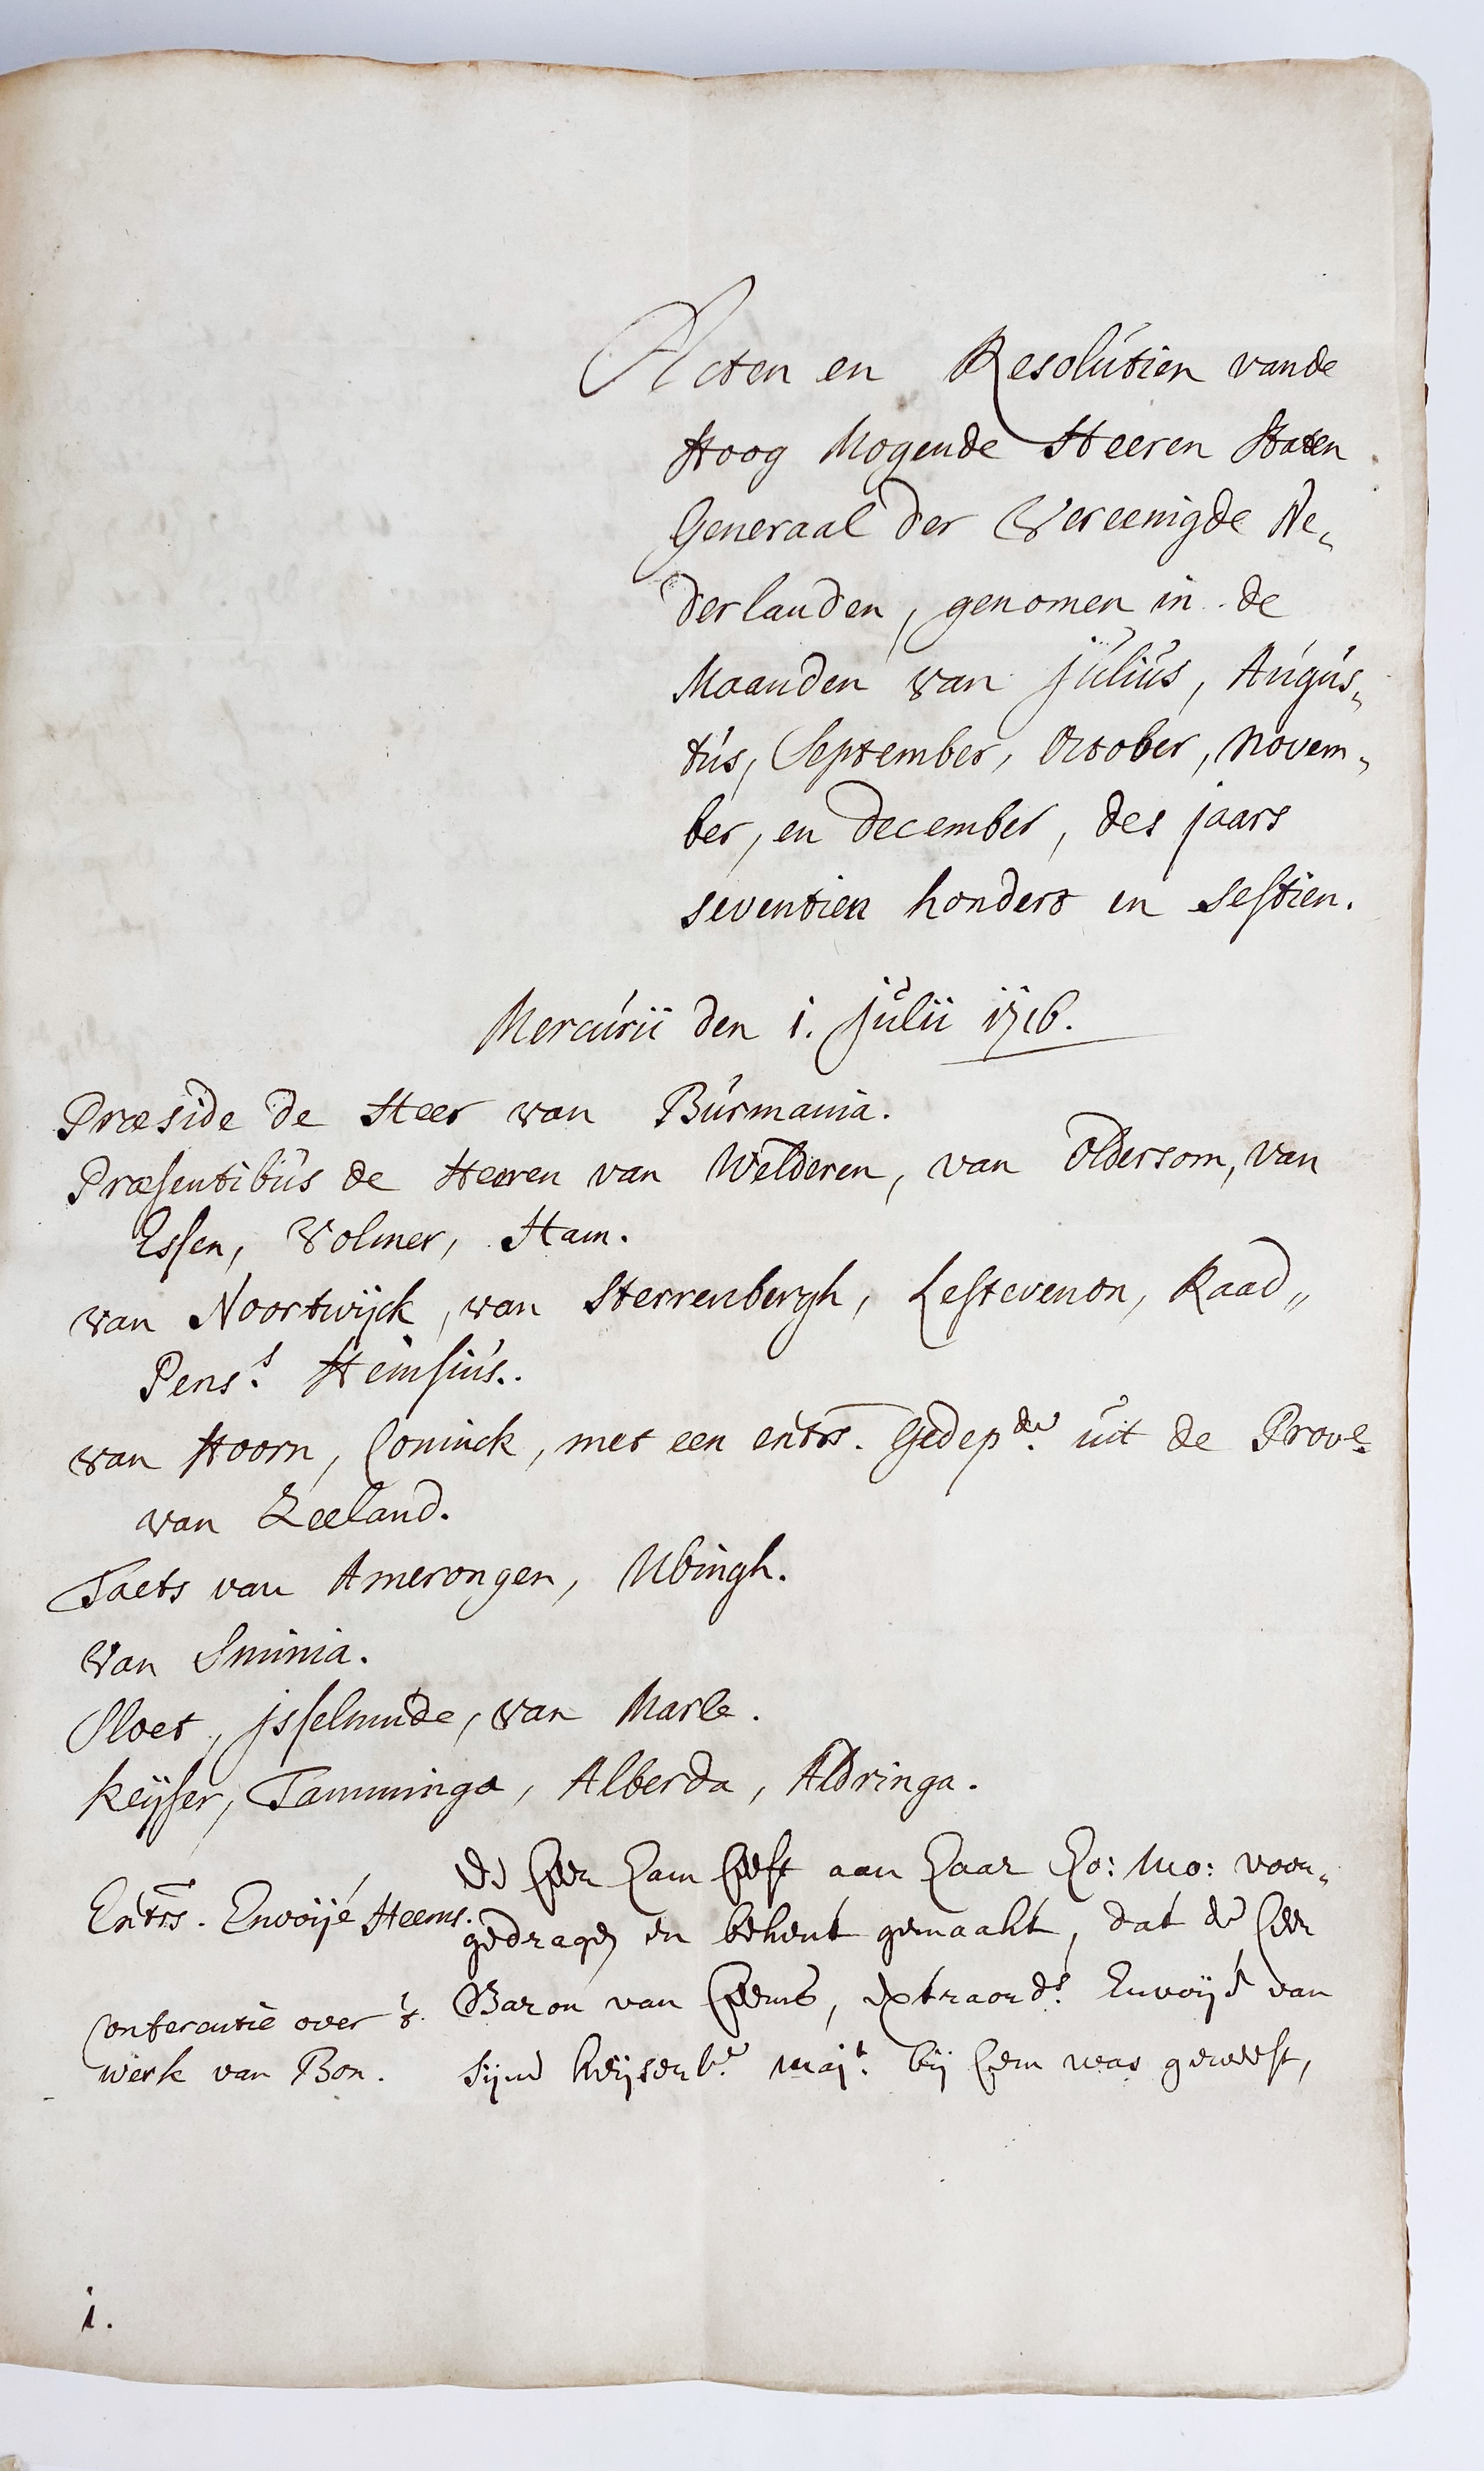 Acten en Resolútien vande
Hoog Mogende Heeren Staten
Generaal der Vereenigde Ne„
derlanden, genomen in de
Maanden van Július, Augús„
tús, September, October, Novem„
ber, en December, des jaars
seventien hondert en sestien.
Mercúrii den 1. Júlii 1716.
Præside de Heer van Búrmania.
Præsentibús de Heeren van Welderen, van Oldersom, van
Essen, Volmer, Ham.
van Noortwijck, van Sterrenbergh, Lestevenon, Raad„
Pens.s Heinsiús.
van Hoorn, Coninck, met een extrs. Gedep.de uit de Prove.
van Zeeland.
Taets van Amerongen, Ubingh.
van Sminia.
Sloet, Jsselmude, van Marle.
Keijser, Tamminga, Alberda, Aldringa.
Extrs. Envoijé Heems.
Conferentie over 't
werk van Bon.
De Heer Ham heeft aan Haar Ho: Mo: voor„
gedragen en bekent gemaakt, dat de Heer
Baron van Heems, Extraord.s Envoijé van
Sijne Keijserl.e Maj.t bij hem was geweest,
1.